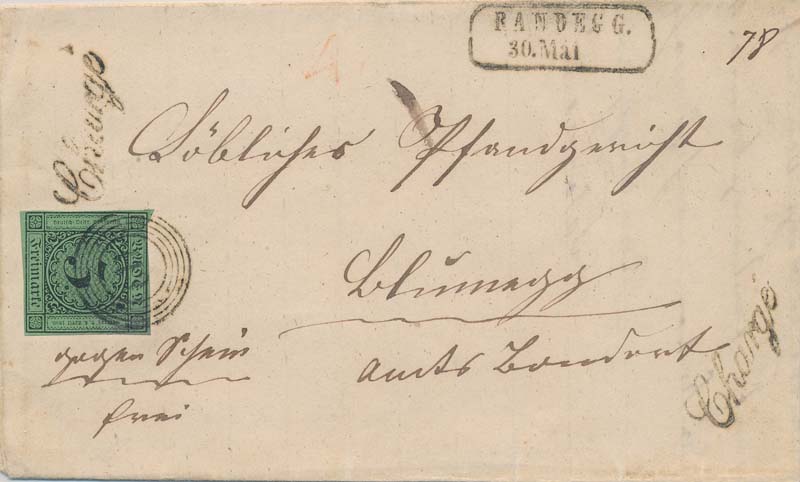 RANDEGG.
30. Mai
78
Chargé
Löbliches Pfandgericht
Blumegg
Amts Bonndorf
Chargé
Freimarke
BADEN
3
gegen Schein
frei